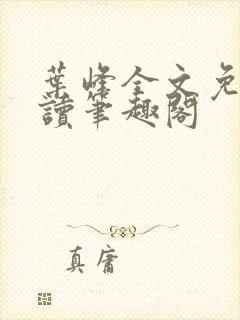 葉峰全文免
讀筆趣閣
真庸